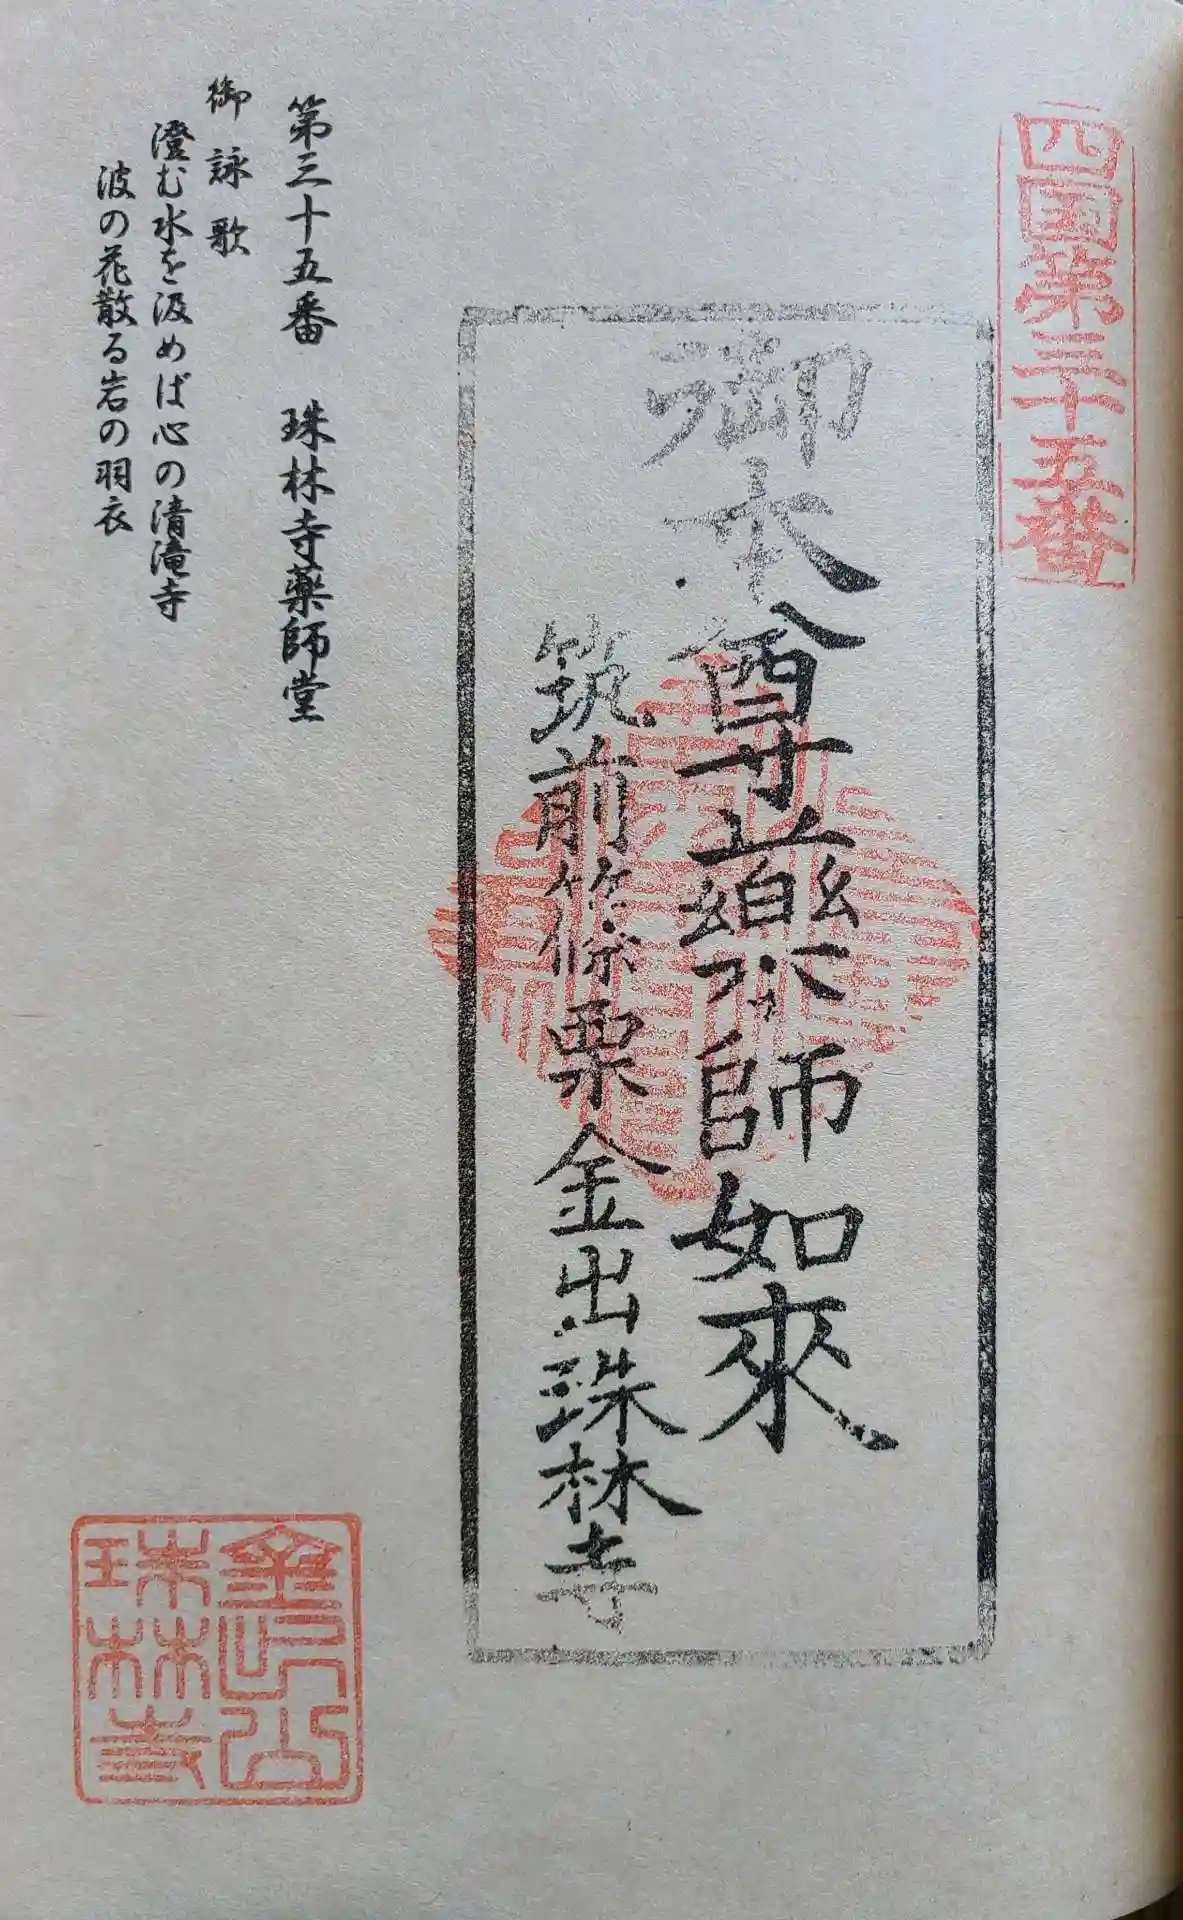 四国第三十五番
御本尊薬師如來
筑前篠栗金出珠林寺
第三十五番　珠林寺薬師堂
御詠歌
澄む水を汲めば心の清滝寺
波の花散る岩の羽衣
珠林寺